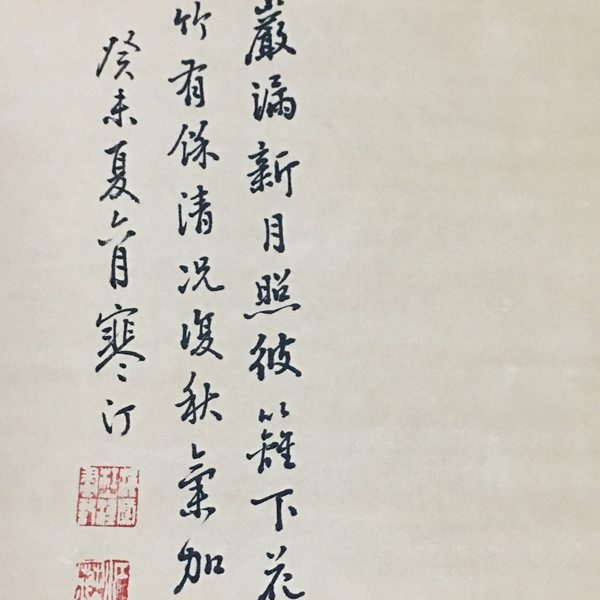 巖漏新月照彼籬下花
竹有餘清况復秋氣加
癸未夏六月寒汀